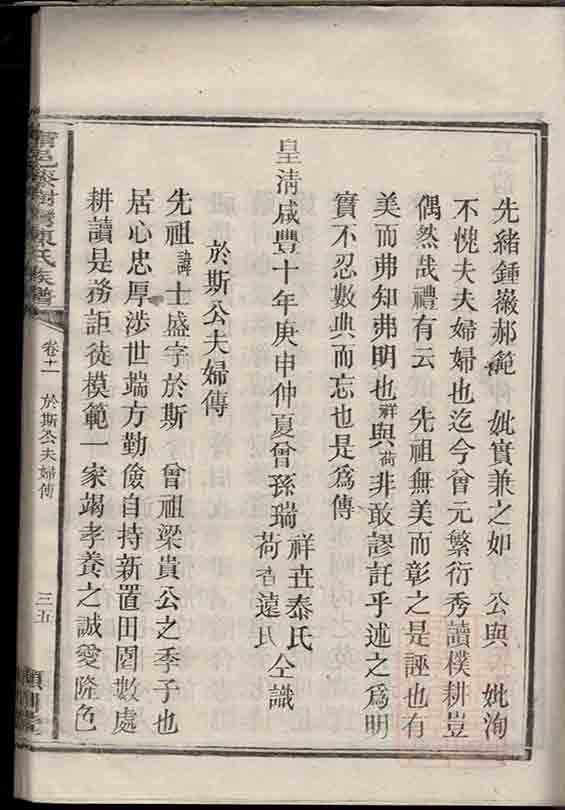 先緒鍾嶶郝範 妣實兼之如 公與 妣洵
不愧夫夫婦婦也迄今曾元繁衍秀讀樸耕豈
偶然哉禮有云 先祖無美而彰之是誣也有
美而弗知弗明也祥與荷非敢謬託乎述之為明
實不忍數典而忘也是為傳
皇清咸豐十年庚申仲夏曾孫瑞祥荷 泰遠氏氏仝識
於斯公夫婦傳
先祖諱士盛字於斯 曾祖梁貴公之季子也
居心忠厚涉世端方勤儉自持新置田園數處
耕讀是務詎徒模範一家竭孝養之誠愛隆色
陳氏族譜 卷十一 於斯公夫婦傳 三五